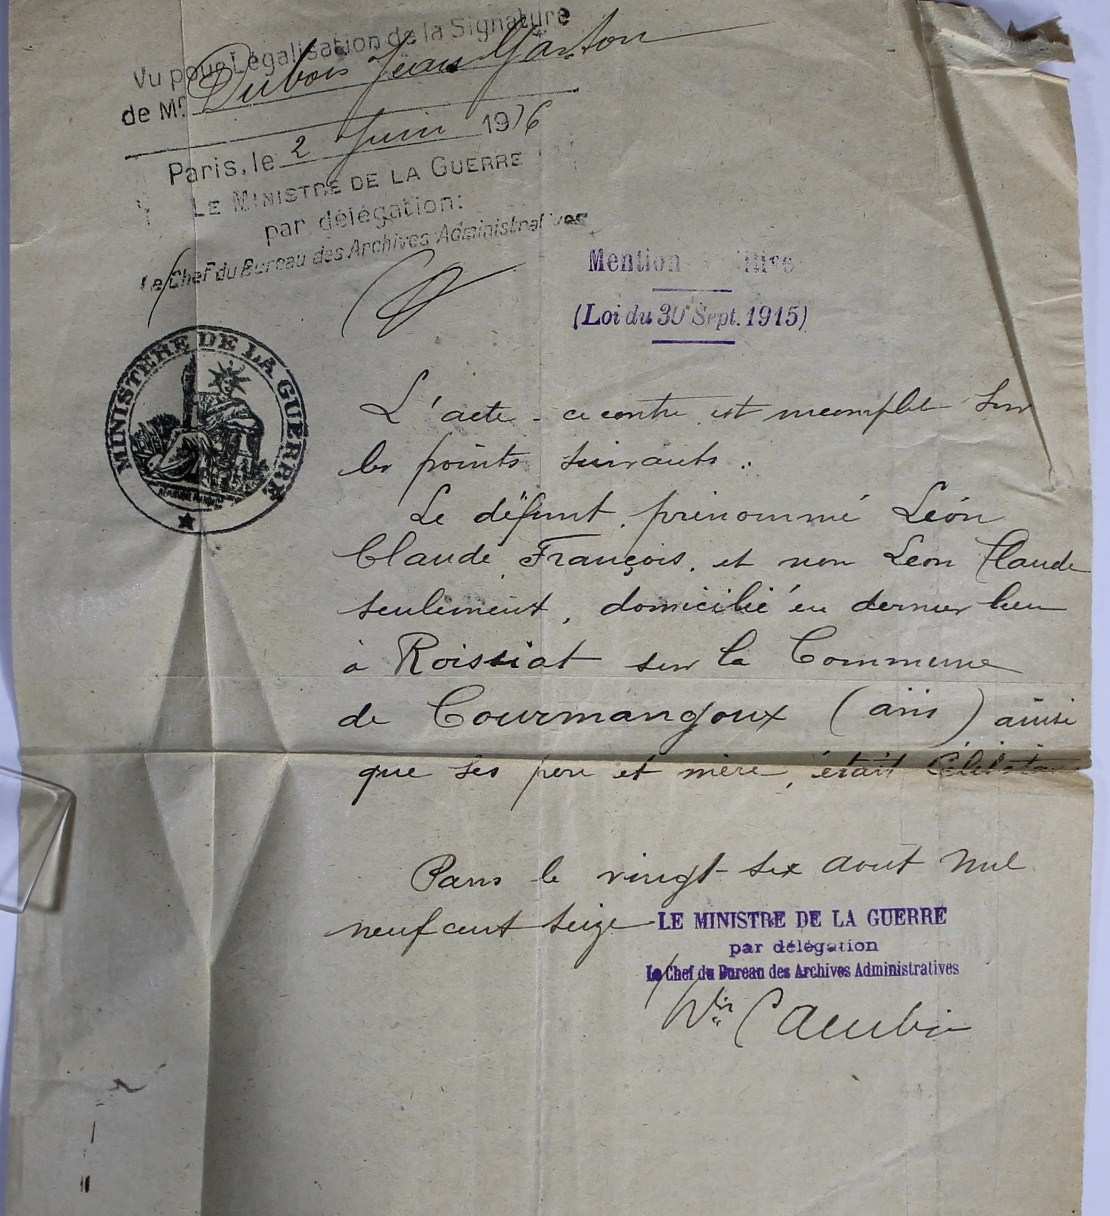 Vu pour Légalisation de la Signature
de Mr. Dubois Jean Gaston
Paris, le 2 Juin 1916
LE MINISTRE DE LA GUERRE
par délégation:
Le Chef du Bureau des Archives Administratives
Mention
(Loi du 30 Sept. 1915)
MINISTÈRE DE LA GUERRE
L'acte ci contre est incomplet sur
les points suivants :
Le défunt, prénommé Léon
Claude François, et non Léon Claude
seulement, domicilié en dernier lieu
à Roissiat sur la Commune
de Courmangoux (ain) ainsi
que ses père et mère, était Célibataire
Paris le vingt-six août mil
neuf cent seize
LE MINISTRE DE LA GUERRE
par délégation
Le Chef du Bureau des Archives Administratives